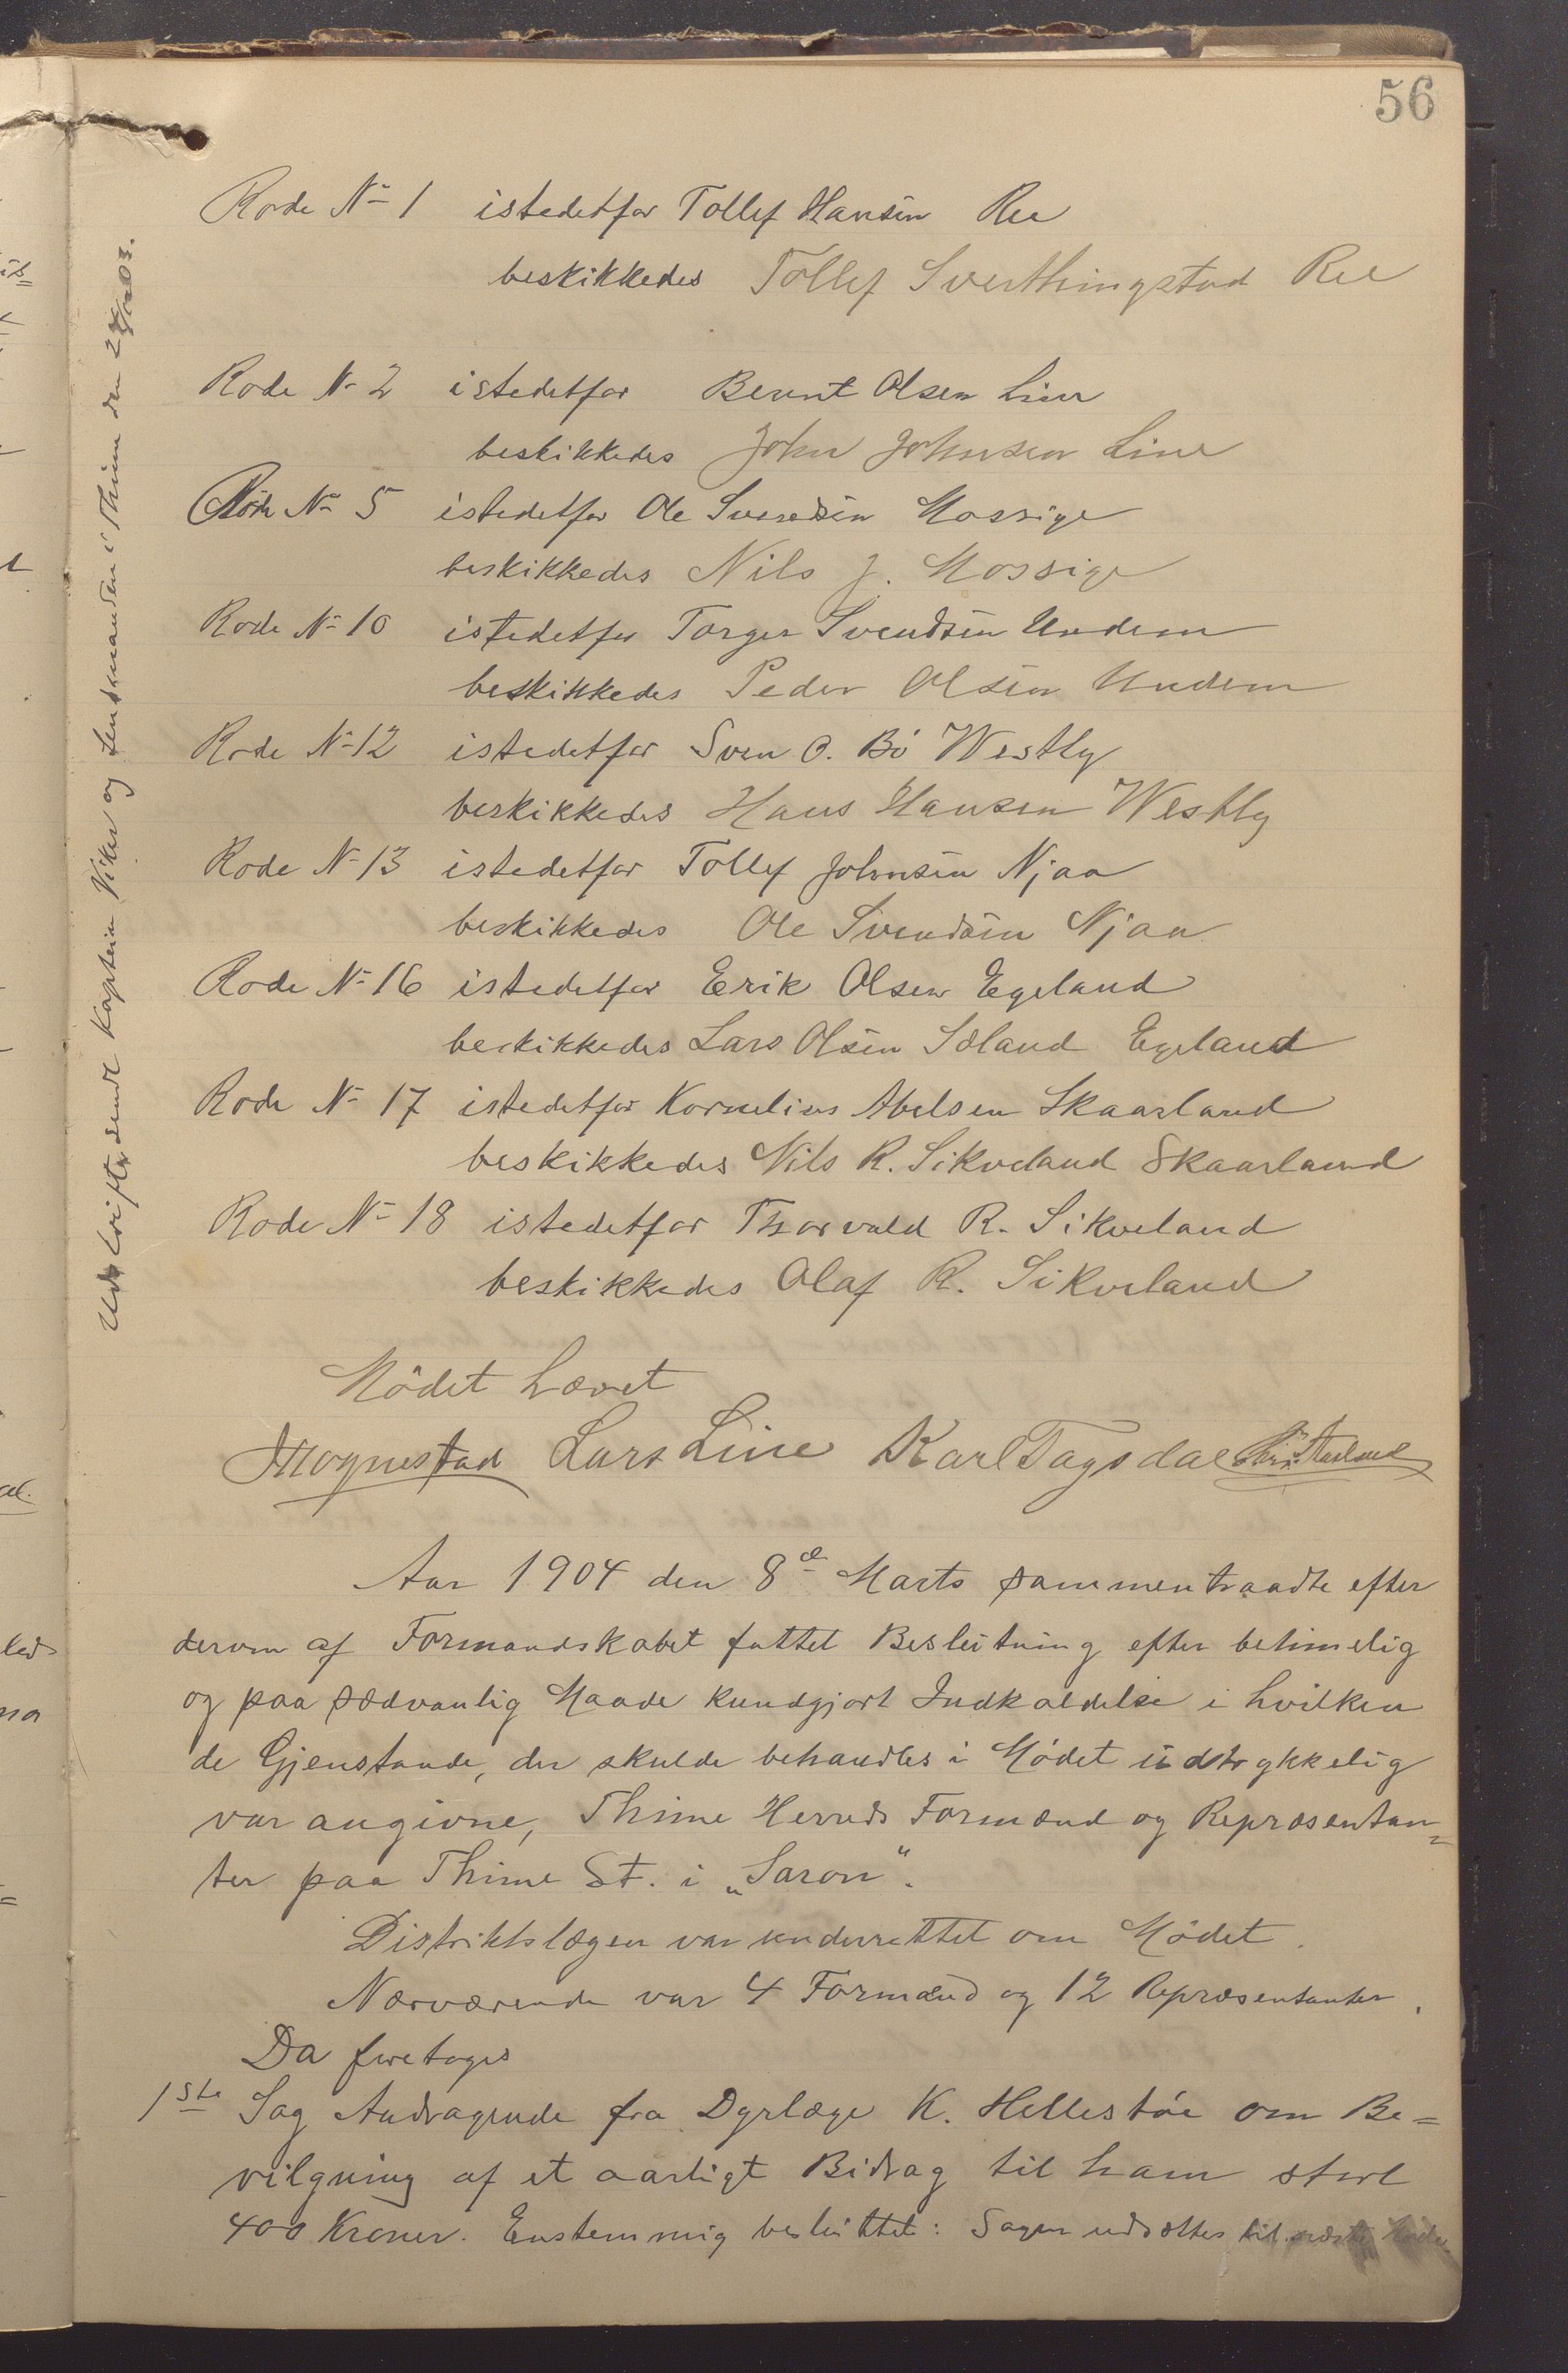 56
Rode No 1 istedetfor Tollef Hansen Ree
beskikkedes Tollef Sverthingstad Ree
Rode No 2 istedetfor Bernt Olsen Line
beskikkedes John Johnsen Line
Rode No 5 istedetfor Ole Svendsen Mossige
beskikkedes Nils J. Mossige
Rode No 10 istedetfor Torger Svendsen Undem
beskikkedes Peder Olsen Undem
Rode No 12 istedetfor Sven O. Bö Westly
beskikkedes Hans Hansen Westly
Rode No 13 istedetfor Tollef Johnsen Njaa
beskikkedes Ole Svendsen Njaa
Rode No 16 istedetfor Erik Olsen Egeland
beskikkedes Lars Olsen Sæland Egeland
Rode No 17 istedetfor Kornelius Abelsen Skaarland
beskikkedes Nils R. Sikveland Skaarland
Rode No 18 istedetfor Thorvald R. Sikveland
beskikkedes Olaf R. Sikveland
Udskrift sendt Kaptein Viker og Lensmanden i Thime den
Mödet hævet
Mognestad Lars Line Karl Tagsdal
Aar 1904 den 8de Marts sammentraadte efter
derom af Formandskabet fattet Beslutning efter betimelig
og paa sædvanlig Maade kundgjort Indkaldelse i hvilken
de Gjenstande, der skulde behandles i Mödet udtrykkelig
var angivne, Thime Herreds Formænd og Repræsentan=
ter paa Thime St. i „Saron“.
Distriktslægen var underrettet om Mödet.
Nærværende var 4 Formænd og 12 Repræsentanter.
Da foretoges
1ste Sag Andragende fra Dyrlæge K. Hellestöe om Be=
vilgning af et aarligt Bidrag til ham stort
400 Kroner. Enstemmig besluttet: Sagen udsættes til næste Möde.